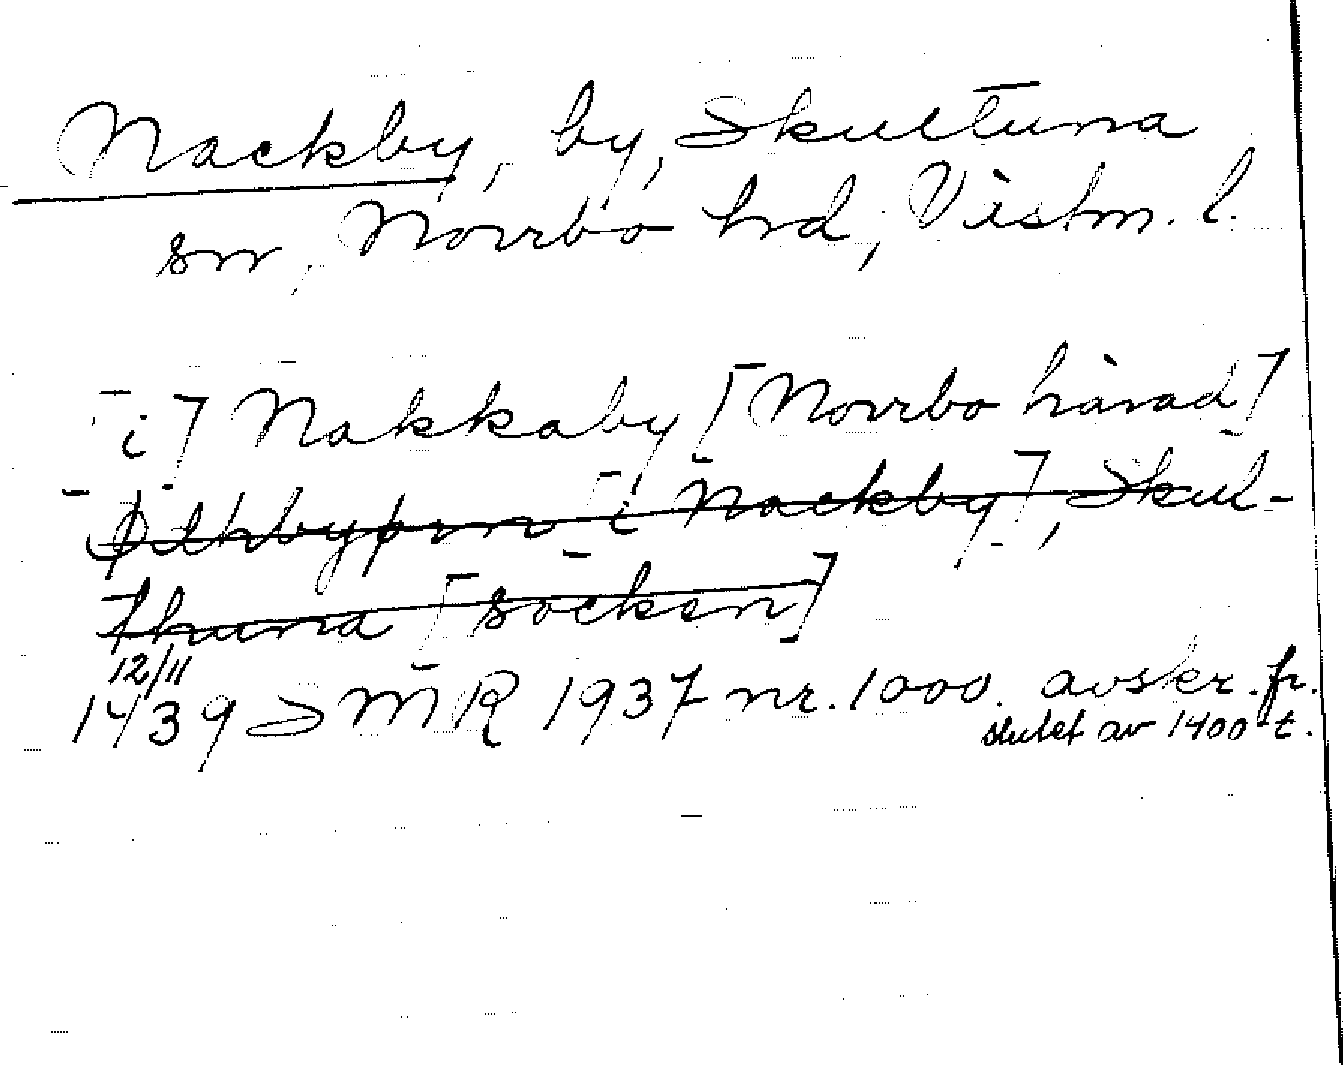 Nackby, by, Skultuna
sn, Norrbo hrd, Västm. l.
[i] Nakkaby [Norrbo härad]
[i Nackby], Skul-
thuna [socken]
12/11
1439 SMR 1937 nr. 1000. avskr. fr.
slutet av 1400-t.